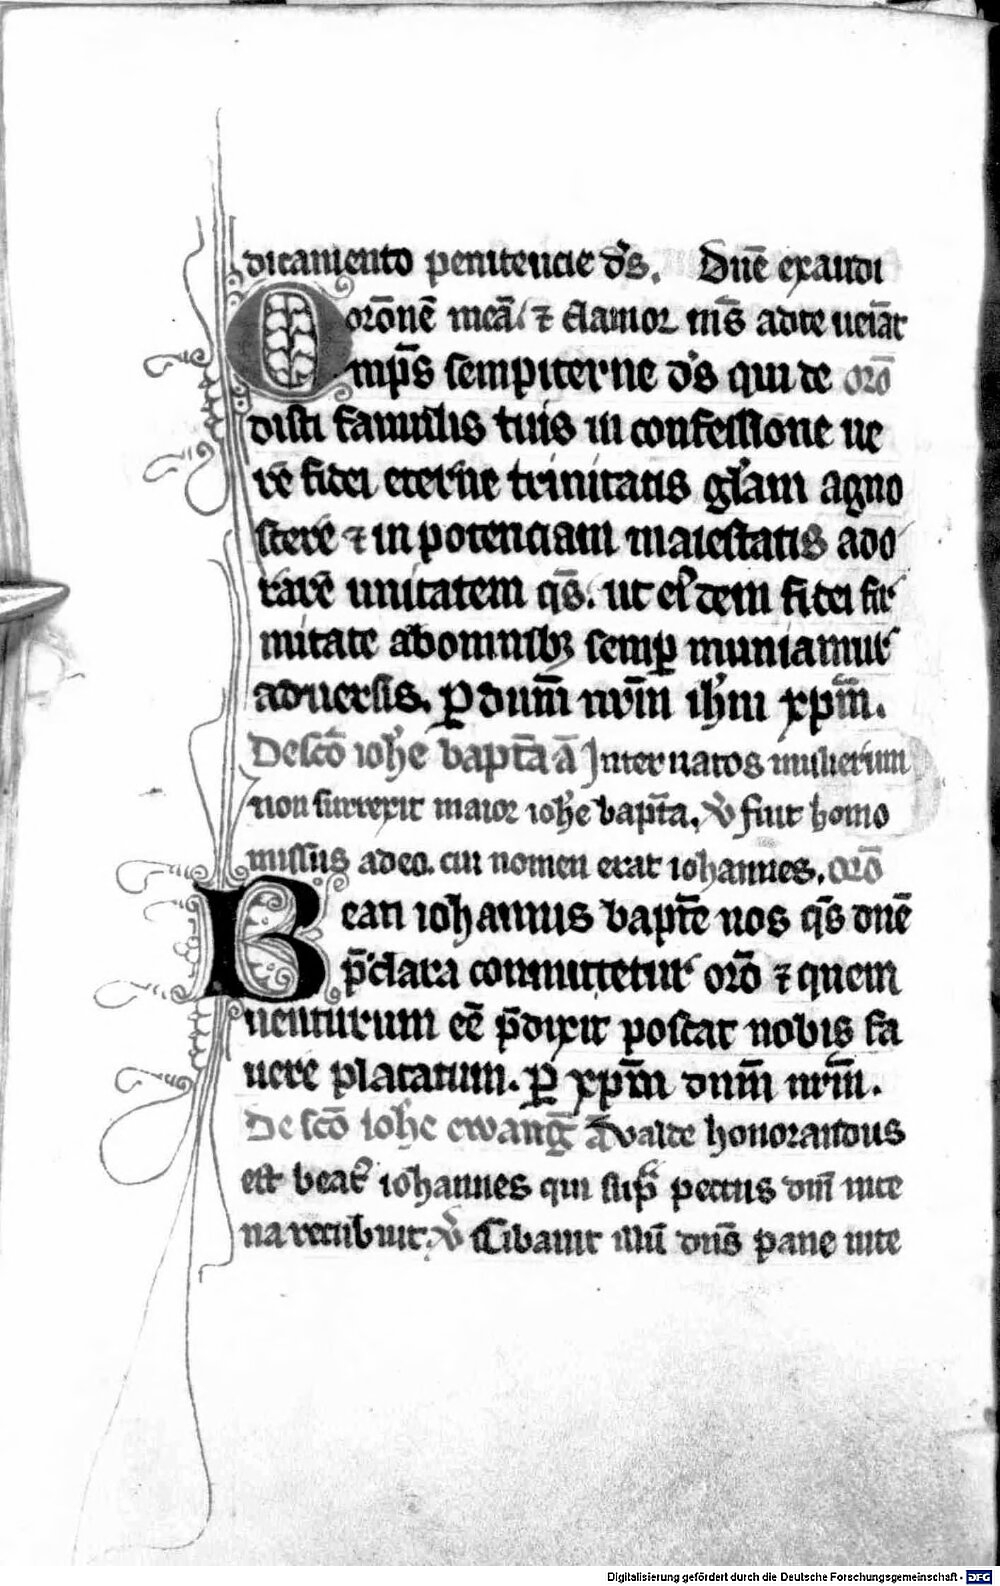 dicamento penitencie ds̄. Dn̄e exaudi
orōnē meā. ⁊ clamor mꝰs adte ueīat
Omp̄s sempiterne ds̄ qui de orō
disti famulis tuis in confessione ue
re fidei eterne trinitatis gl̄am agno
scere ⁊ in potencia maiestatis ado
rare unitatem qs̄. ut eiꝰdem fidei fir
mitate abomnibꝫ semꝑ muniamur
aduersis. ꝑ dnm̄ nr̄m ih̄m xp̄m.
De scō ioh̄e bapta ā Inter natos mulierum
non surrexit maior ioh̄e bapta. ℣ fuit homo
missus adeo. cui nomen erat iohannes. orō
Beati iohannis bapt̄e nos qs̄ dn̄e
p̄clara comittetur orō ⁊ quem
uenturum eē p̄dixit poscat nobis fa
uere placatum. ꝑ xp̄m dnm̄ nr̄m.
De scō ioh̄e ewanḡ ā Valde honorandus
est beatꝰ iohannes qui sup̄ pectus dn̄i ince
na recubuit. ℣ Cibauit illū dn̄s pane uite
Digitalisierung gefördert durch die Deutsche Forschungsgemeinschaft - DFG